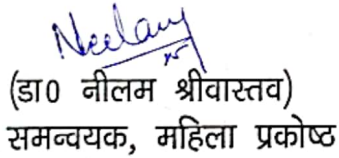 Neelam
(डा0 नीलम श्रीवास्तव)
समन्वयक, महिला प्रकोष्ठ